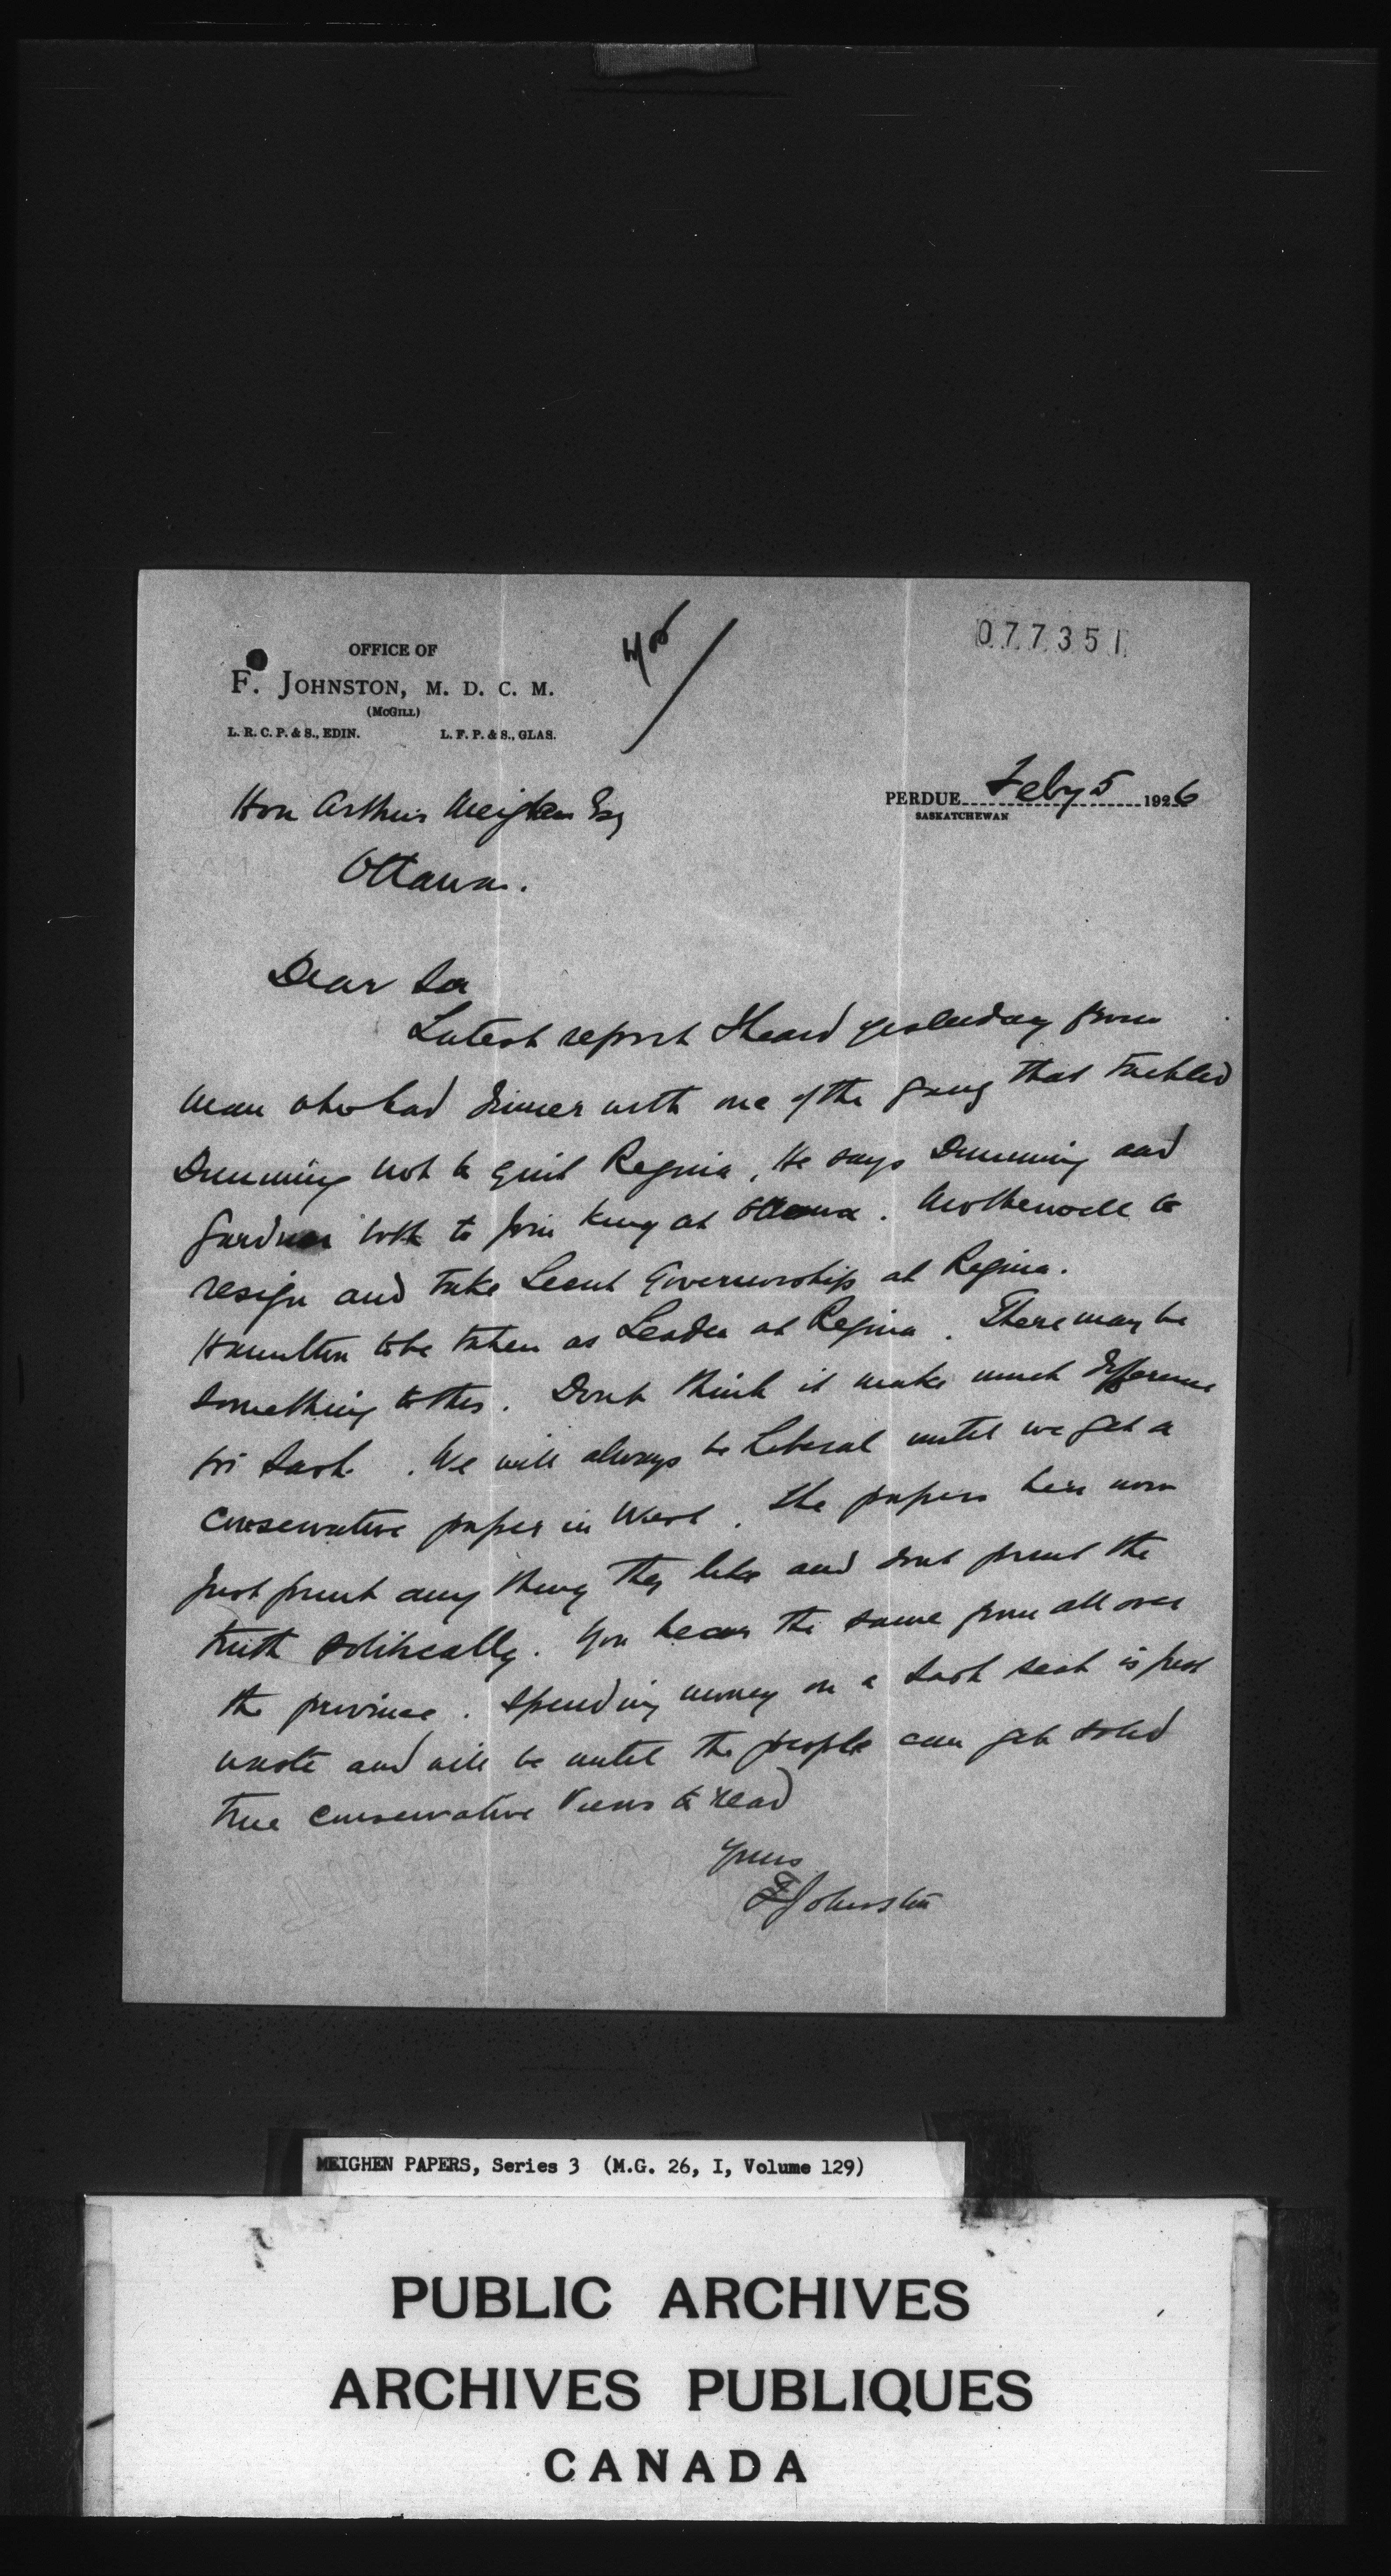 077351
OFFICE OF
F. JOHNSTON, M. D. C. M.
(MCGILL)
L. R. C. P. & S., EDIN. L. F. P. & S., GLAS.
PERDUE Feby 5 1926
SASKATCHEWAN
Hon Arthur Meighen Esq
Ottawa.
Dear Sir
Latest report I heard yesterday from
man who had dinner with one of the gang that
Dunning not to quit Regina. He says Dunning and
Gardner both to join King at Ottawa. Motherwell to
resign and take Lieut Governorship at Regina.
Hamilton to be taken as Leader at Regina. There may be
something to this. Dont think it make much difference
in Sask. We will always be Liberal until we get a
conservative paper in West. The papers here now
just print any thing they like and dont print the
truth politically. You hear the same from all over
the province. Spending money on a Sask seat is just
waste and will be until the people can get solid
true conservative views to read
Yours
F Johnston
MEIGHEN PAPERS, Series 3 (M.G. 26, I, Volume 129)
PUBLIC ARCHIVES
ARCHIVES PUBLIQUES
CANADA